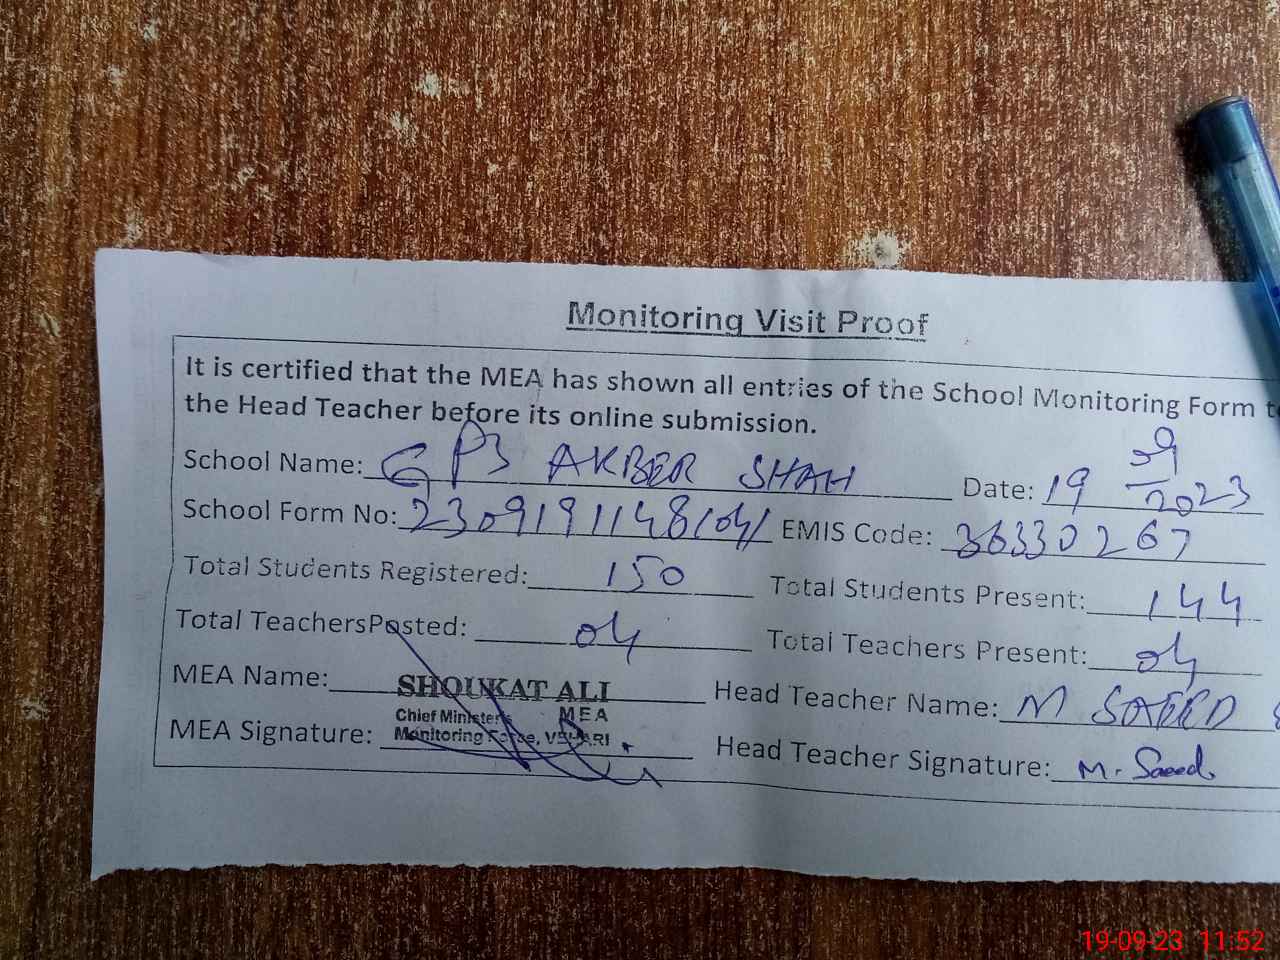 Monitoring Visit Proof
It is certified that the MEA has shown all entries of the School Monitoring Form to
the Head Teacher before its online submission.
School Name: GPS AKBER SHAH Date: 19 09 2023
School Form No: 2309191148104 EMIS Code: 36330267
Total Students Registered: 150 Total Students Present: 144
Total TeachersPosted: 04 Total Teachers Present: 04
MEA Name: SHOUKAT ALI Head Teacher Name: M SAEED
Chief Minister's MEA
Monitoring Force, VEHARI
MEA Signature: Head Teacher Signature: M. Saeed.
19-09-23 11:52